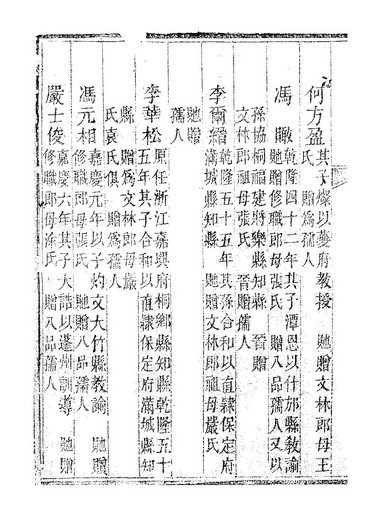 何方盈其子燦以夔府教授 貤贈文林郎母王
氏 贈爲孺人
馮 瞮乾隆四十二年其子潭恩以什邡縣教諭
貤贈修職郎母張氏 贈八品孺人又以
孫協桐福建將樂縣知縣 晉贈
文林郎祖母張氏 晉贈孺人
李爾績乾隆五十五年其孫合和以直隸保定府
滿城縣知縣 貤贈文林郎祖母嚴氏
貤贈
孺人
李華松原任浙江嘉興府桐鄉縣知縣乾隆五十
五年其子合和以直隸保定府滿城縣知
縣 贈爲文林郎母嚴
氏袁氏俱 贈爲孺人
馮元相嘉慶元年以子灼文大竹縣教諭 貤贈
修職郎母張氏 貤贈八品孺人
嚴士俊嘉慶六年其子大誥以蓬州訓導 貤贈
修職郎母涂氏 貤贈八品孺人